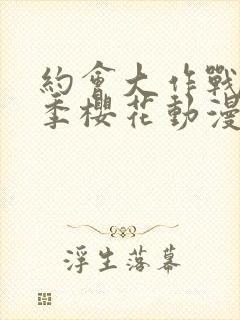 約會大作戰
季櫻花動漫
浮生落幕